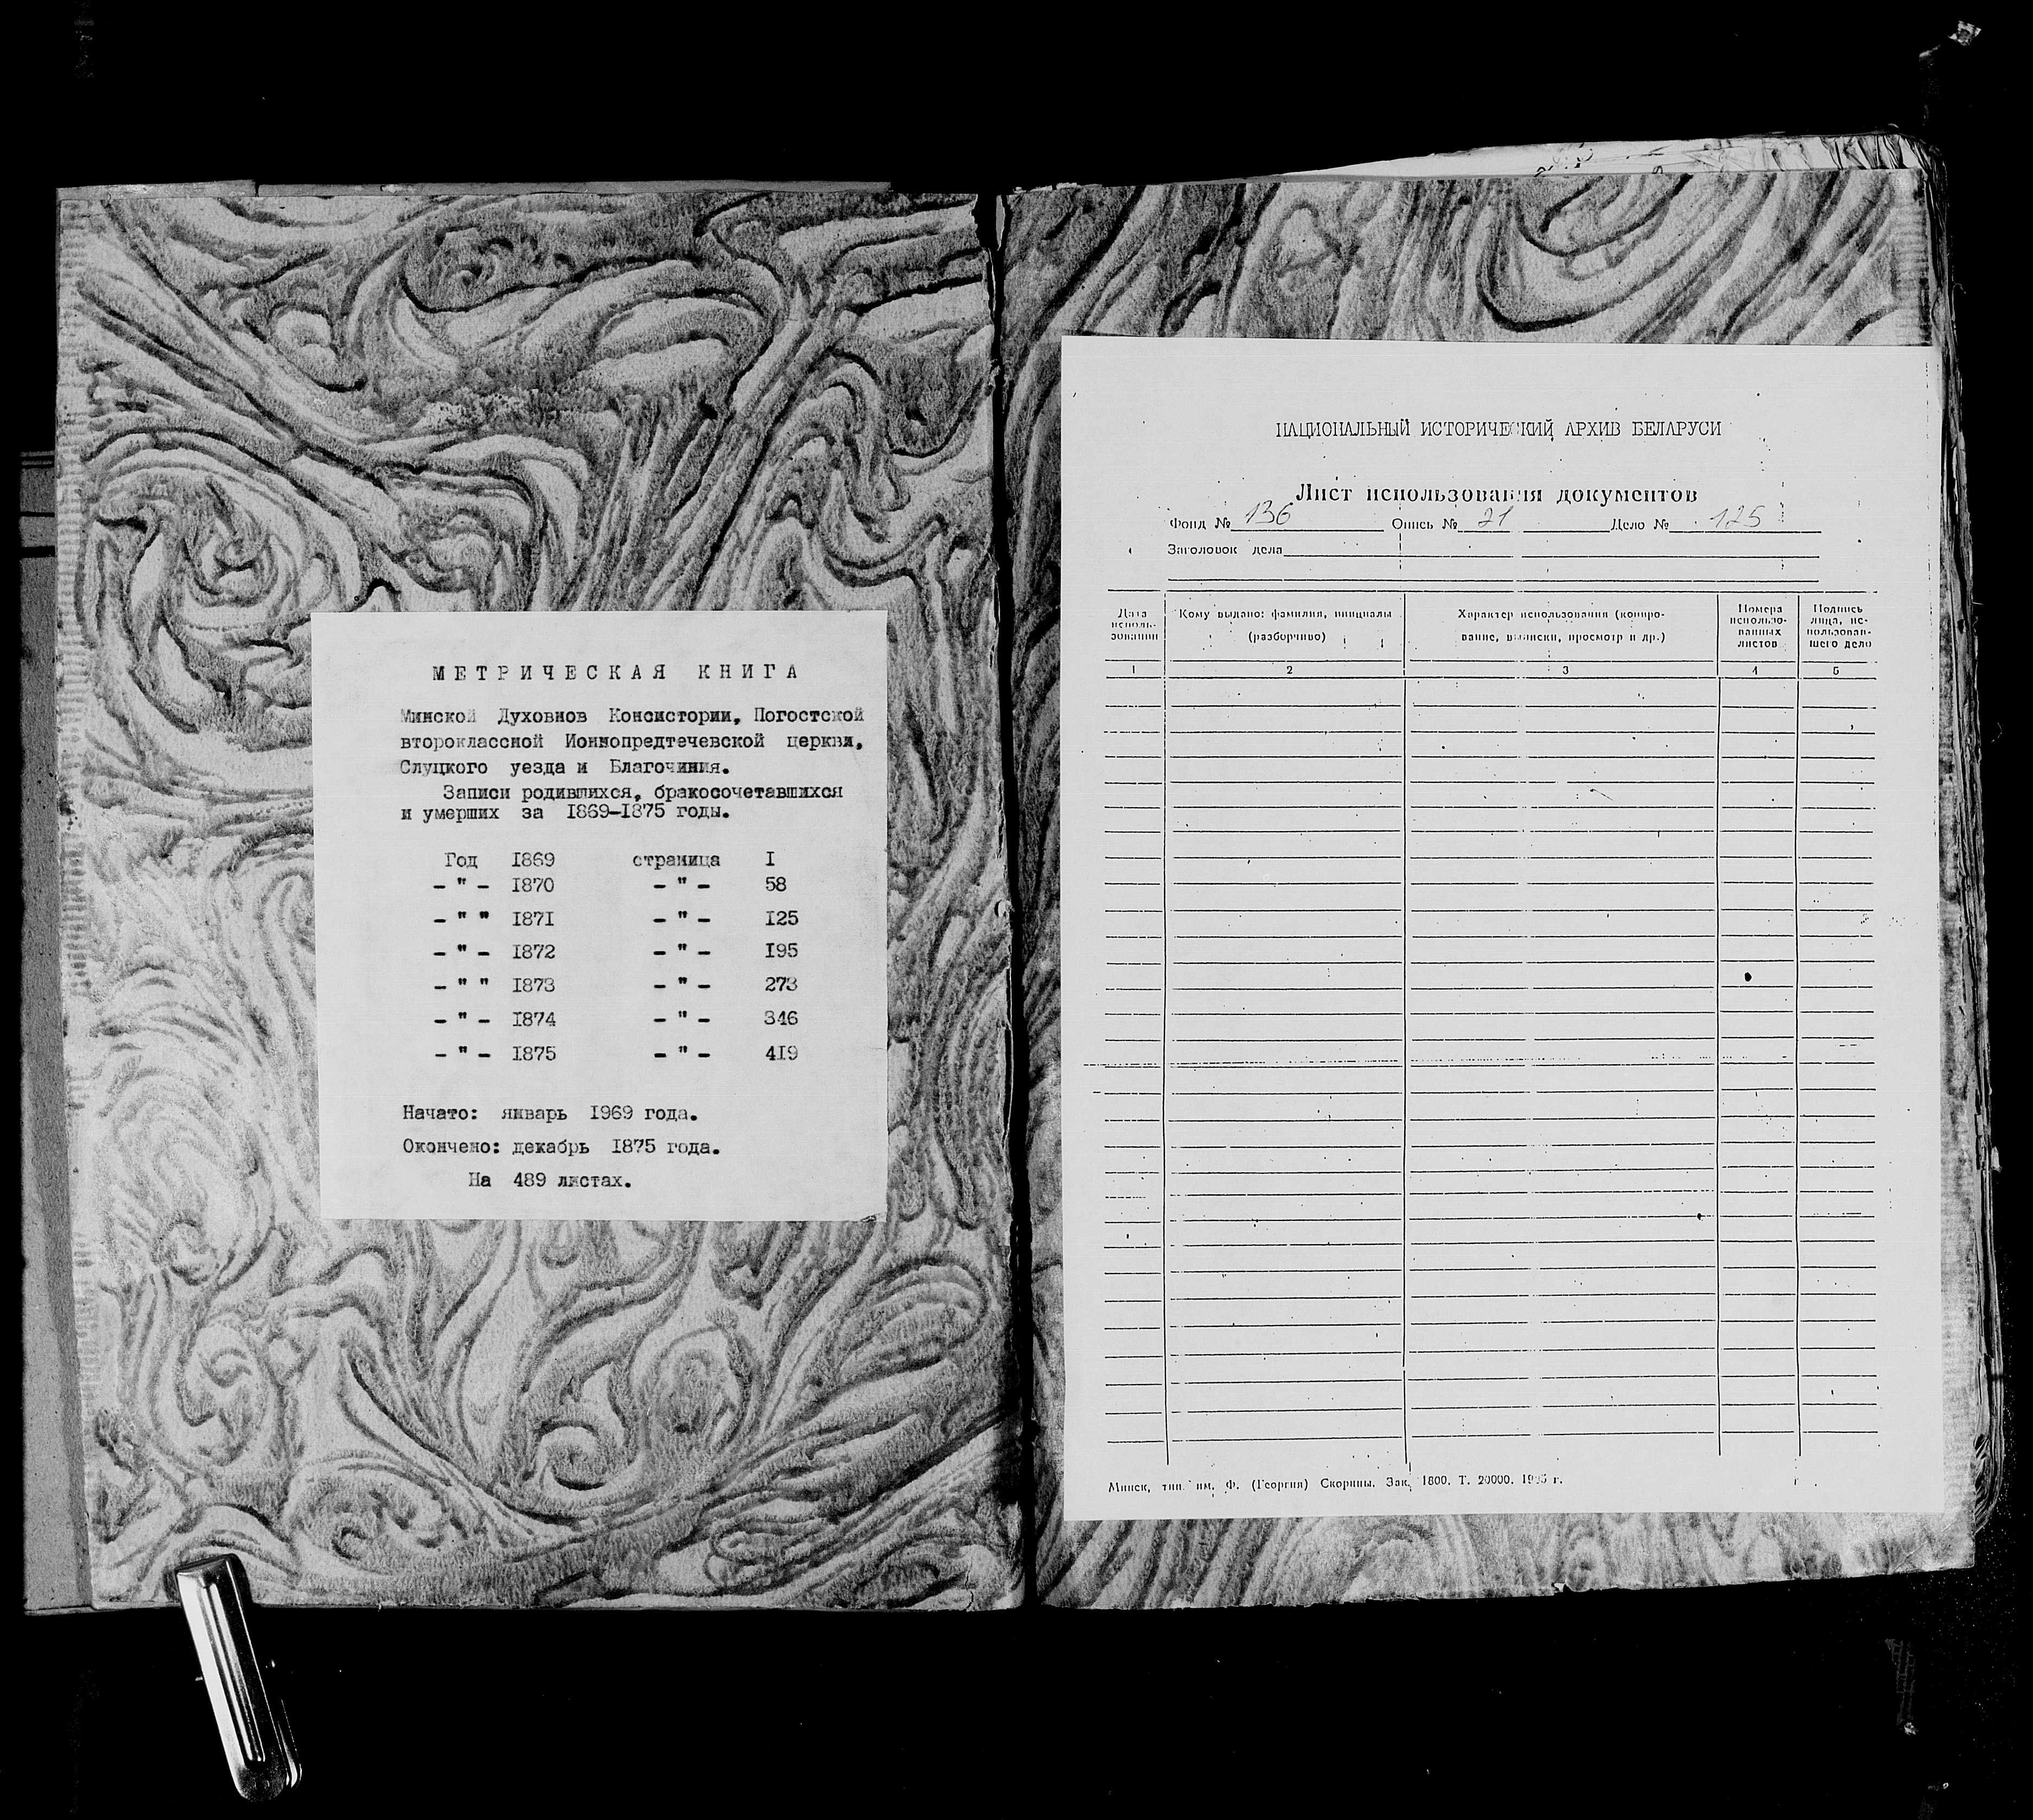 МЕТРИЧЕСКАЯ КНИГА
Минской Духовнов Консистории, Погостской
второклассной Ионнопредтечевской церкви,
Слуцкого уезда и Благочиния.
Записи родившихся, бракосочетавшихся
и умерших за I869–I875 годы.
Год I869 страница I
– " – I870 – " – 58
– " " I871 – " – I25
– " – I872 – " – I95
– " " I873 – " – 273
– " – I874 – " – 346
– " – I875 – " – 4I9
Начато: январь I969 года.
Окончено: декабрь I875 года.
На 489 листах.
НАЦИОНАЛЬНЫЙ ИСТОРИЧЕСКИЙ АРХИВ БЕЛАРУСИ
Лист использования документов
Фонд № 136 Опись № 21 Дело № 125
Заголовок дела
Дата исполь-зования
Кому выдано: фамилия, инициалы (разборчиво)
Характер использования (копиро-вание, выписки, просмотр и др.)
Номера использо-ванных листов
Подпись лица, ис-пользовав-шего дело
1 2 3 4 5
Минск, тип. им. Ф. (Георгия) Скорины. Зак. 1800. Т. 20000. г.